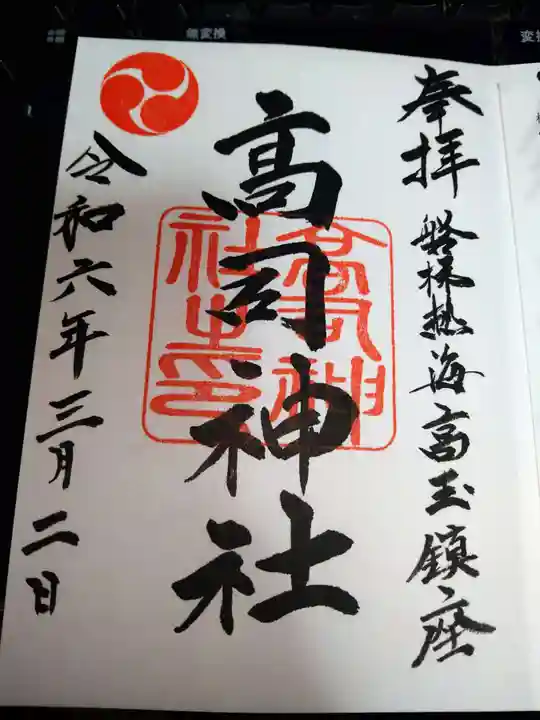 奉拝 磐梯熱海高玉鎮座
高司神社
高司神社之印
令和六年三月二日
無変換
変換